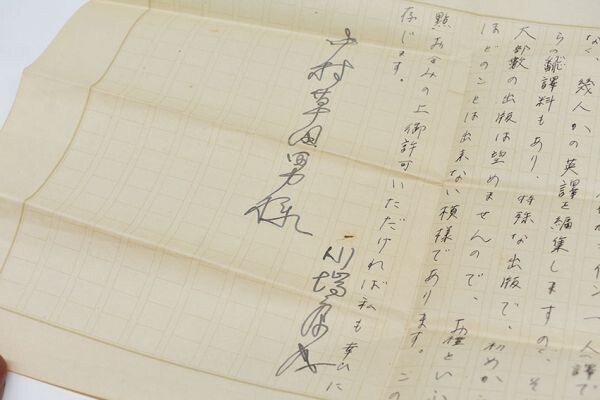 一人譯で
なく、幾人かの英譯を編集しますので、そ
らの飜譯料もあり、特殊な出版で、初めか
大部数の出版は望めませんので、お禮とい
ほどのことは出来ない模様であります。この
點お含みの上御許可いただければ私も幸に
存じます。
川端康成
中村草田男様